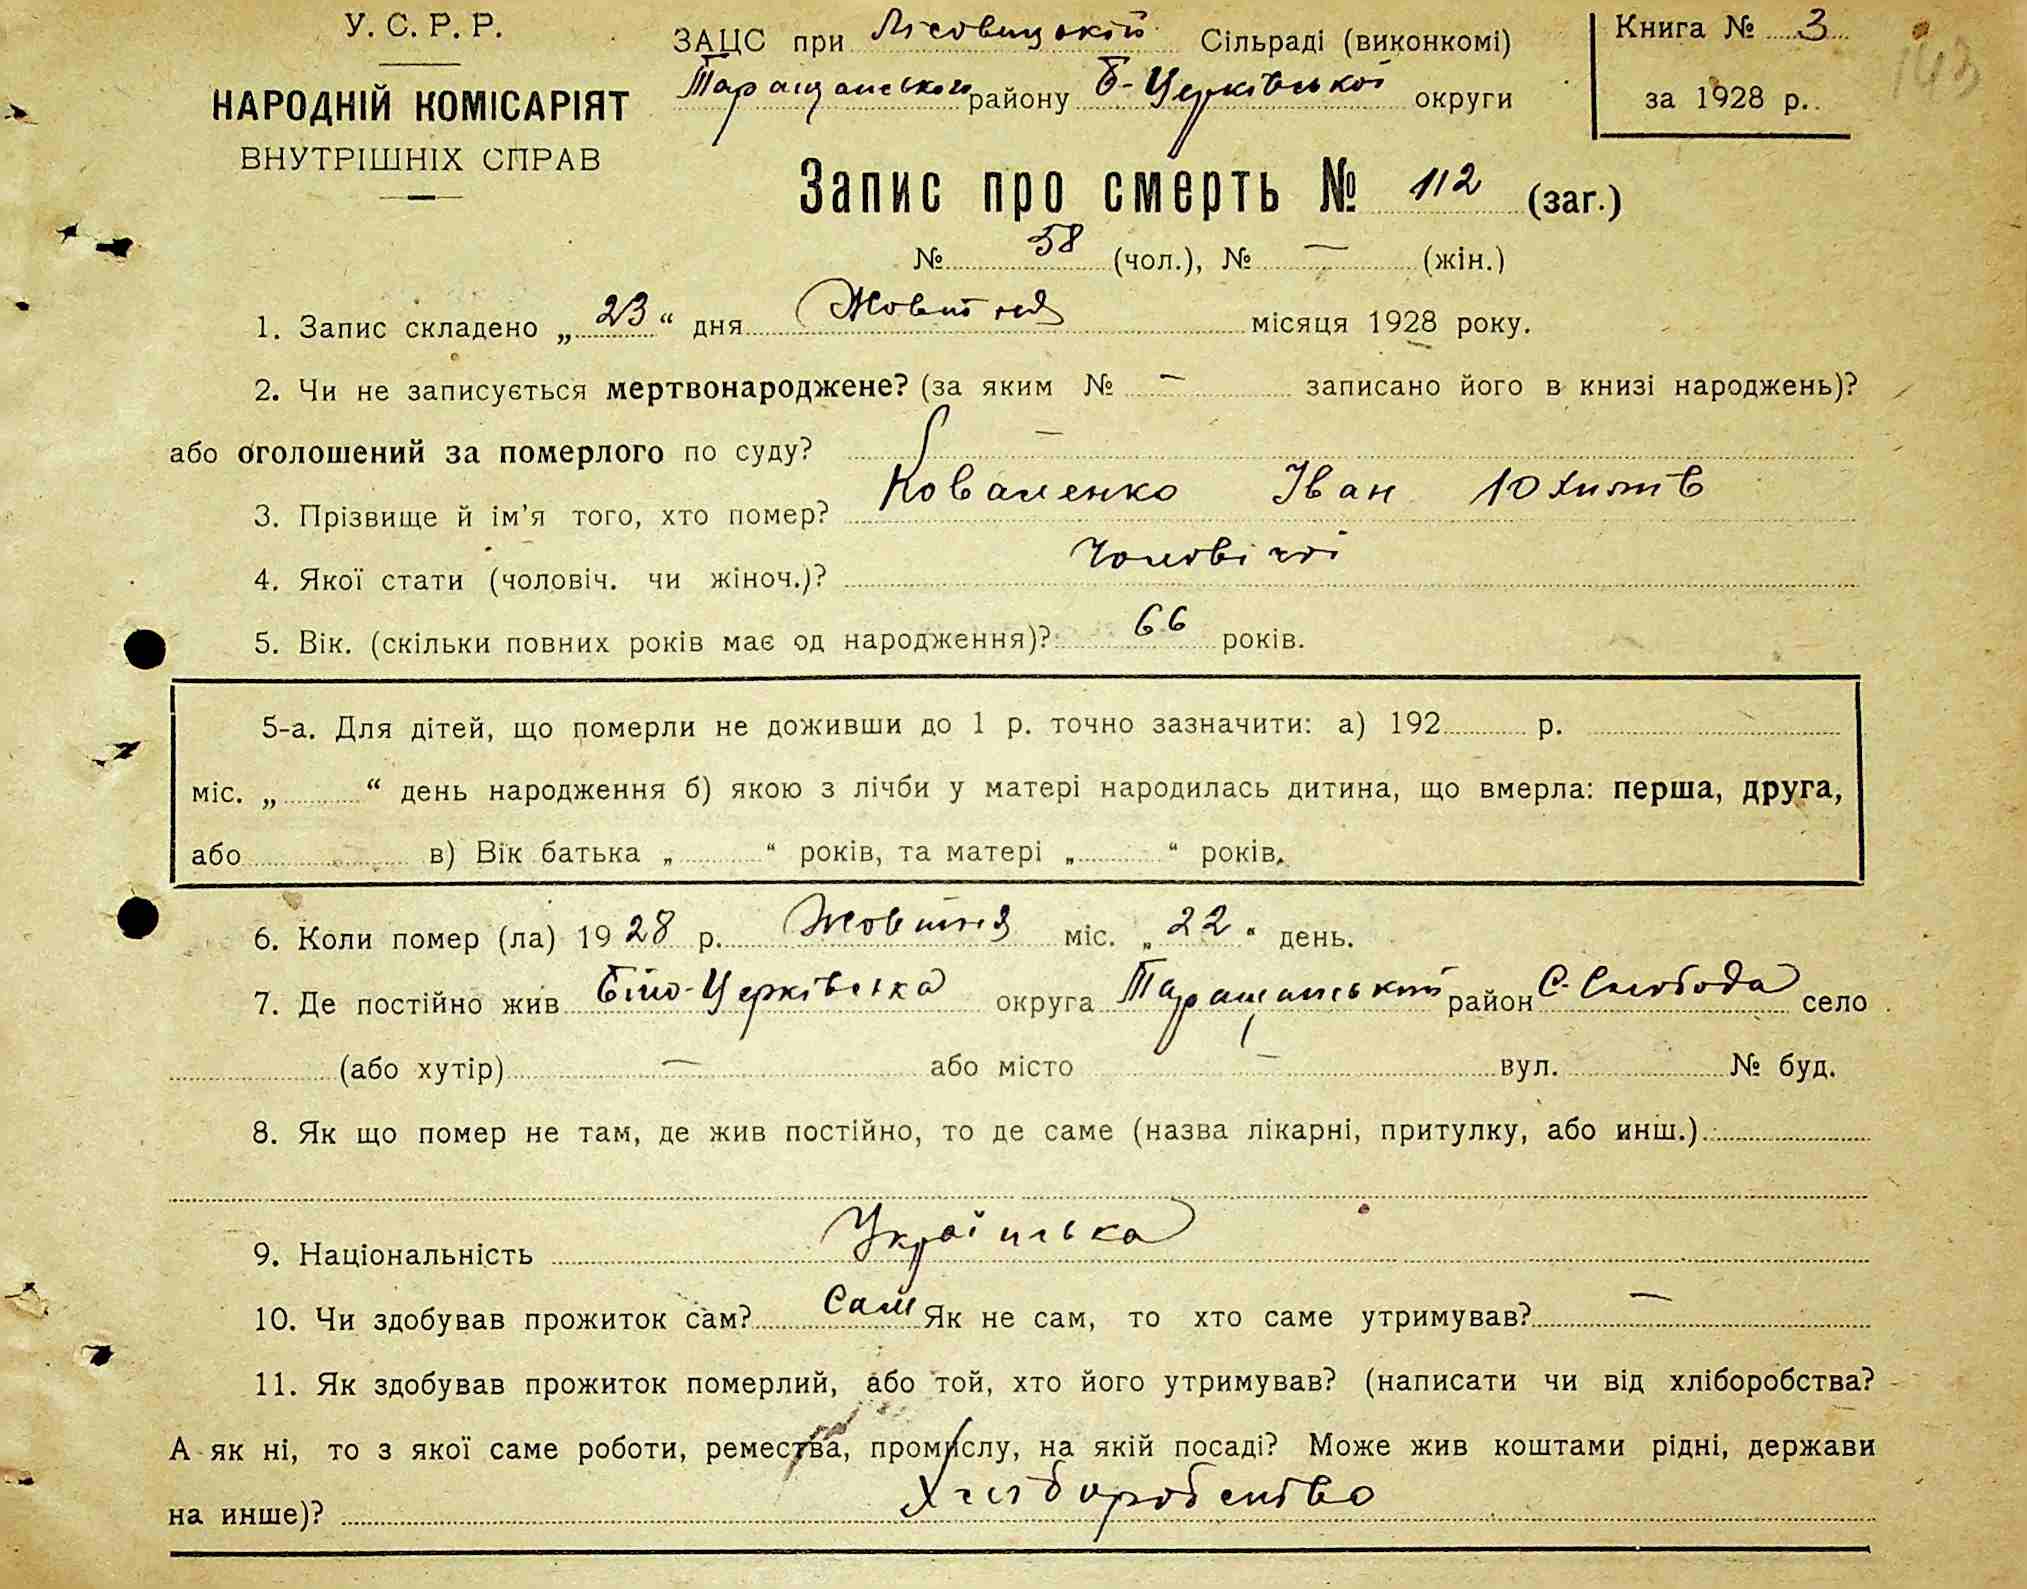 У. С. Р. Р.
НАРОДНІЙ КОМІСАРІЯТ
ВНУТРІШНІХ СПРАВ
ЗАЦС при Лісовицькій Сільраді (виконкомі)
Таращанського району Б-Церківської округи
Книга № 3
за 1928 р.
143
Запис про смерть № 112 (заг.)
№ 58 (чол.), № — (жін.)
1. Запис складено „23“ дня Жовтня місяця 1928 року.
2. Чи не записується мертвонароджене? (за яким № — записано його в книзі народжень)?
або оголошений за померлого по суду? —
3. Прізвище й ім'я того, хто помер? Коваленко Іван Юхимів
4. Якої стати (чоловіч. чи жіноч.)? Чоловічої
5. Вік. (скільки повних років має од народження)? 66 років.
5-а. Для дітей, що померли не доживши до 1 р. точно зазначити: а) 192 р.
міс. „ “ день народження б) якою з лічби у матері народилась дитина, що вмерла: перша, друга,
або в) Вік батька „ “ років, та матері „ “ років.
6. Коли помер (ла) 1928 р. Жовтня міс. „22“ день.
7. Де постійно жив Біло-Церківська округа Таращанський район С. Слобода село
(або хутір) — або місто — вул. № буд.
8. Як що помер не там, де жив постійно, то де саме (назва лікарні, притулку, або инш.)
9. Національність Українська
10. Чи здобував прожиток сам? Сам Як не сам, то хто саме утримував? —
11. Як здобував прожиток померлий, або той, хто його утримував? (написати чи від хліборобства?
А як ні, то з якої саме роботи, ремества, промислу, на якій посаді? Може жив коштами рідні, держави
на инше)? Хліборобство